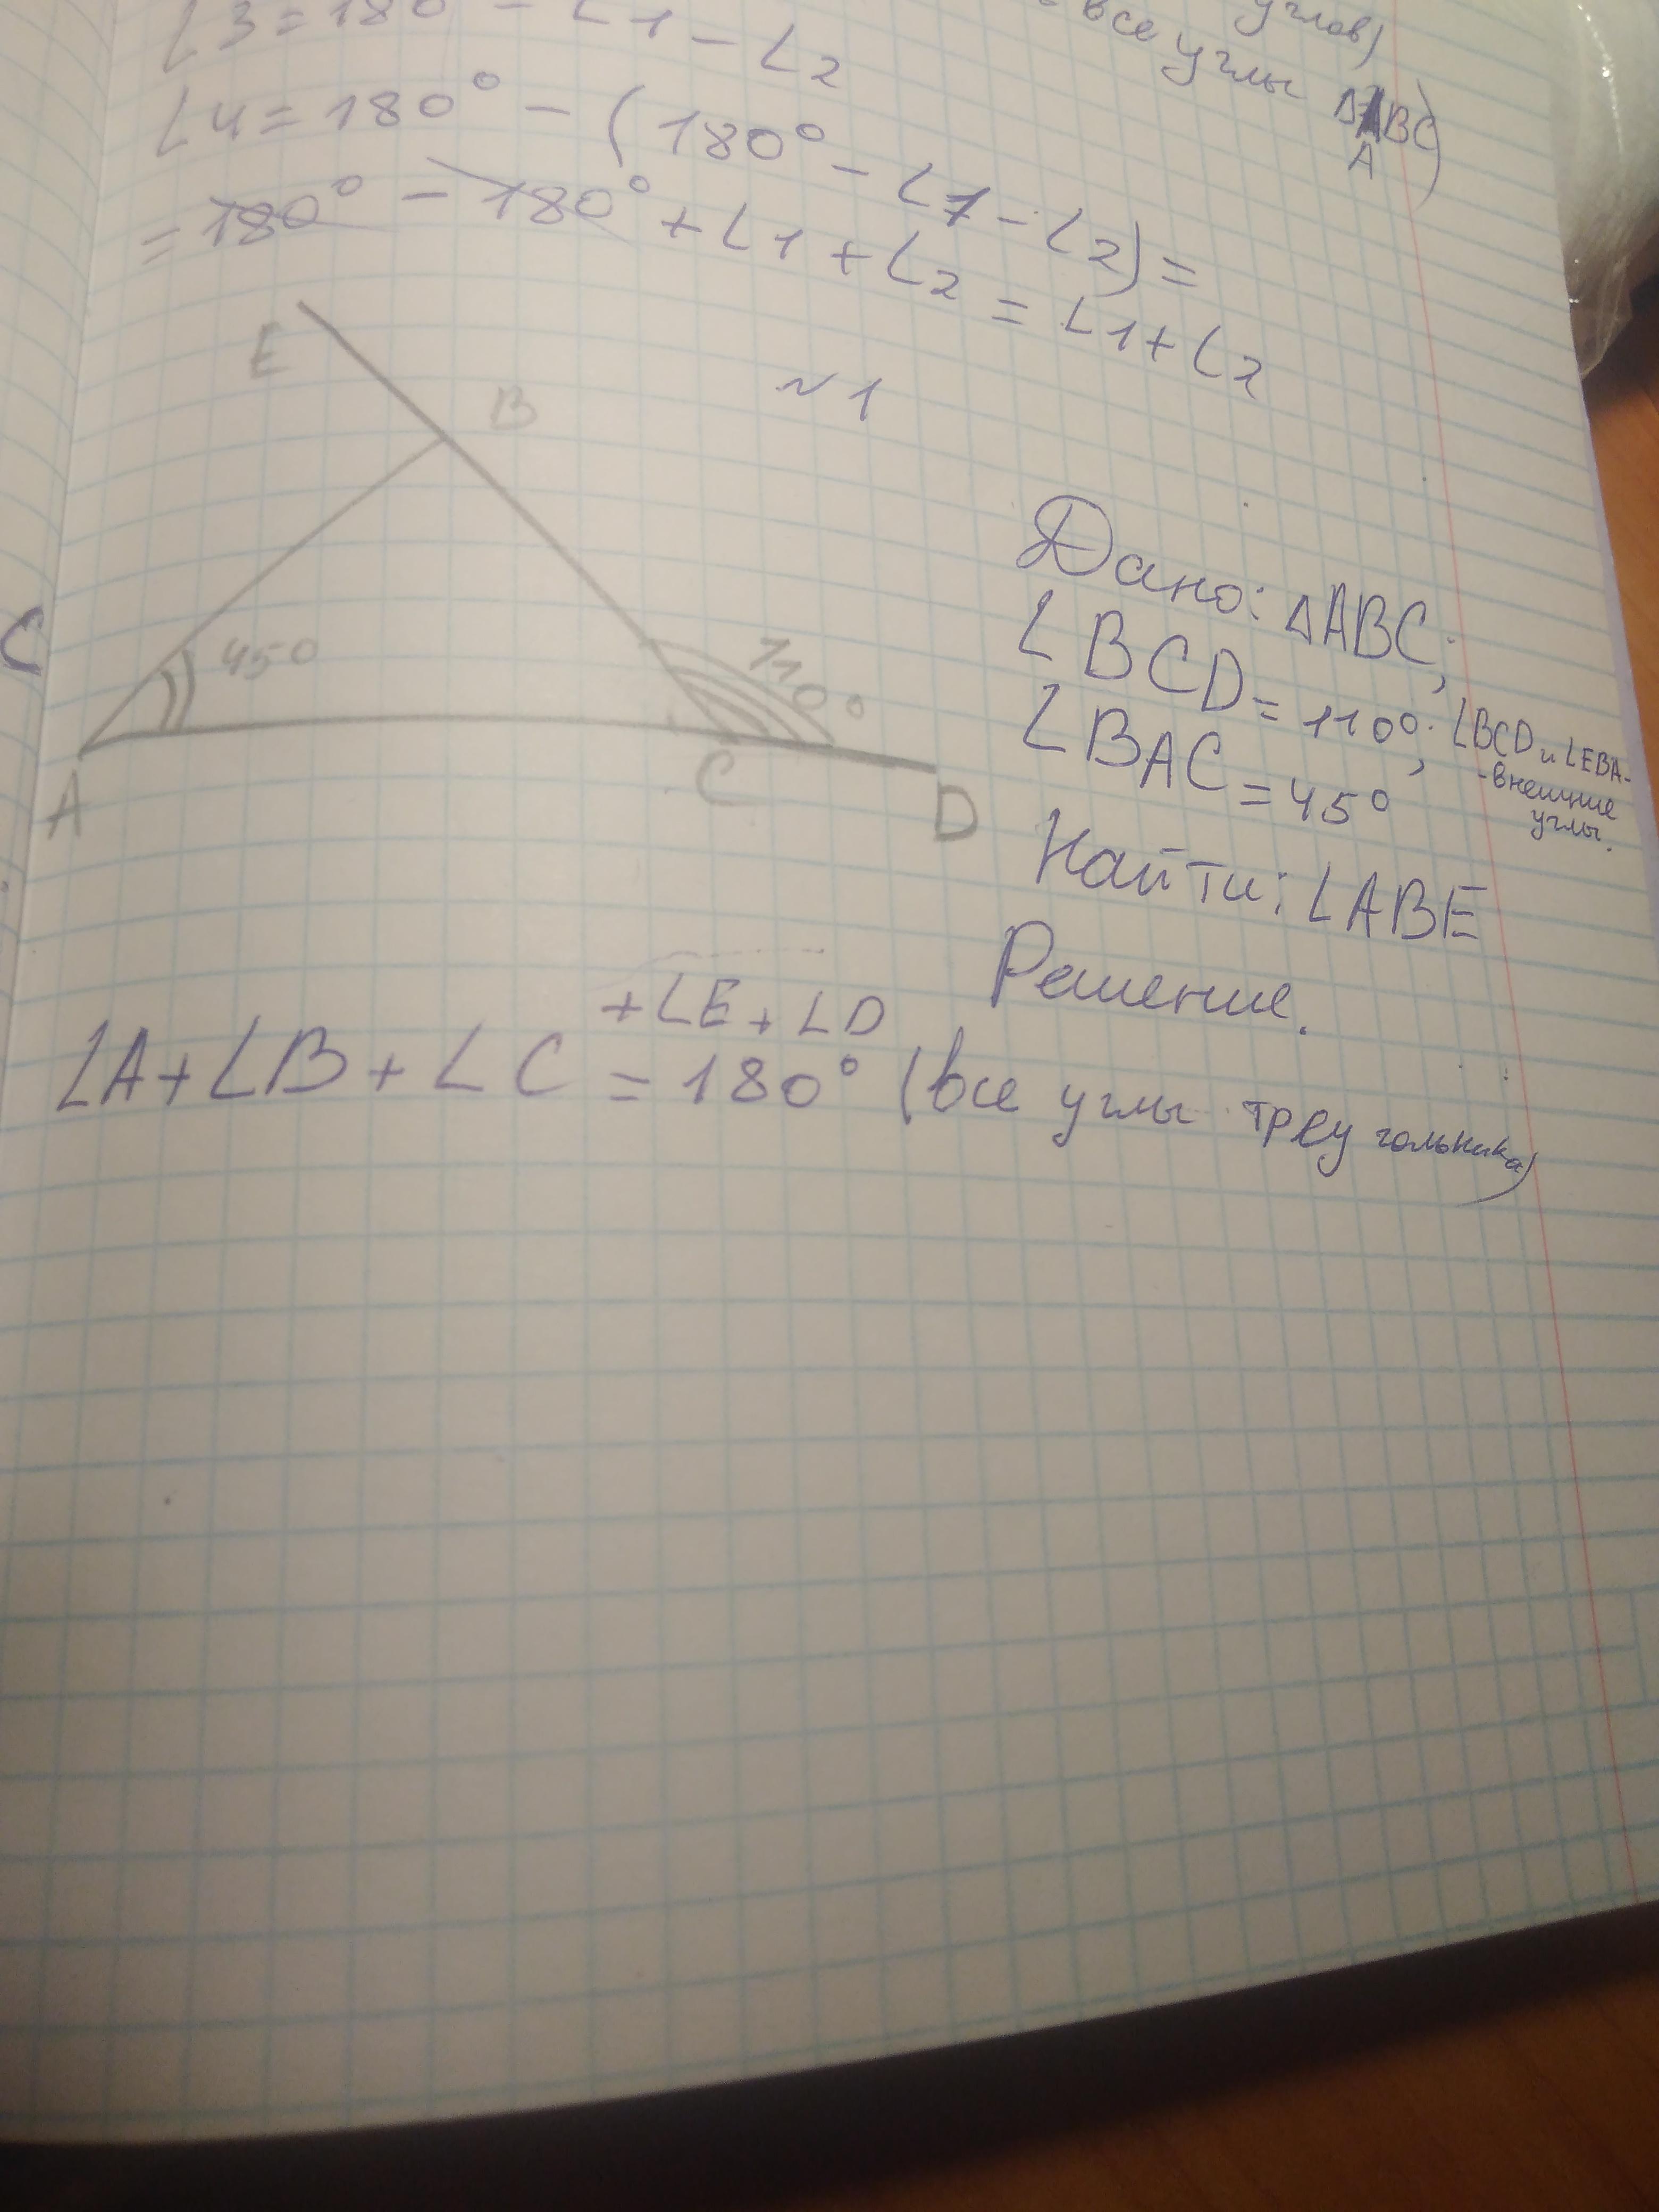 ∠3=180° - ∠1 - ∠2
углов)
все углы ΔABC)
A
∠4=180° - (180° - ∠1 - ∠2)=
= 180° - 180° + ∠1 + ∠2 = ∠1 + ∠2
~1
E
B
45°
110°
A
C
D
C
Дано: ΔABC;
∠BCD = 110°;
∠BCD и ∠EBA -
- внешние
углы.
∠BAC = 45°
Найти: ∠ABE
Решение.
+∠E + ∠D
∠A+∠B+∠C = 180° (все углы треугольника)